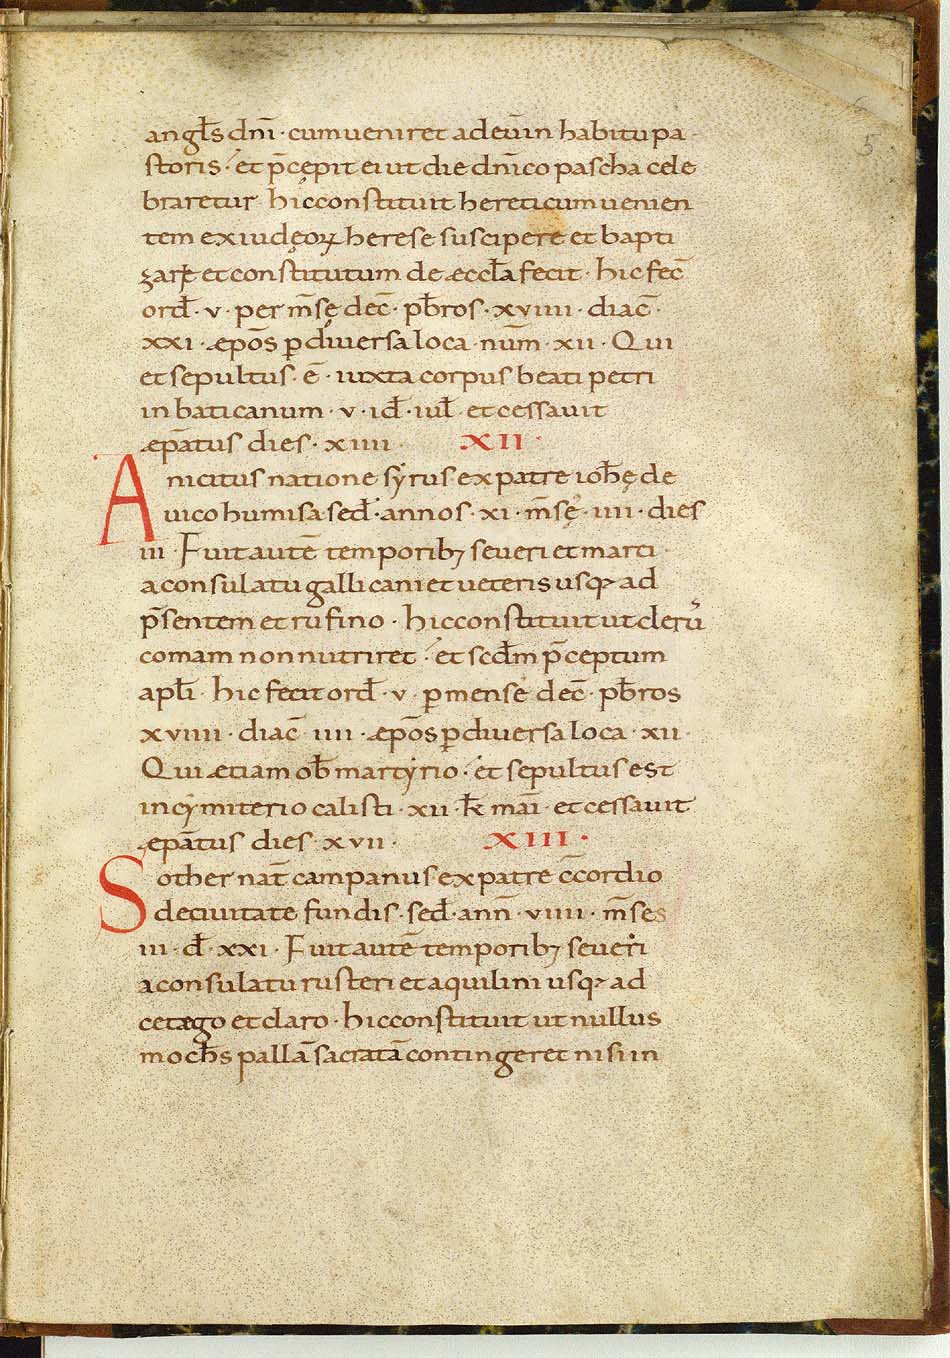 5
angl̄s dn̄i · cum ueniret ad eūin habitu pa-
storis · et p̄cepit ei ut die dn̄ico pascha cele
braretur hic constituit hereticum uenien
tem ex iudęoꝝ herese suscipere et bapti
zare et constitutum de æccl̄a fecit · hic fec̄
ord̄ · v · per m̄sę dec̄ · pb̄ros · xviiii · diac̄ ·
xxi · æpōs ꝑ diuersa loca · nūm · xii · Qui
et sepultus · ē · iuxta corpus beati petri
in baticanum · v · id̄ · iul̄ · et cessauit
æpātus dies · xiiii · XII ·
Anicitus natione syrus ex patre ioh̄ę de
uico humisa · sed̄ · annos · xi · m̄sę · iiii · dies
iii · Fuit autē temporibꝫ seueri et marci ·
a consulatu gallicani et ueteris usqꝫ ad
p̄sentem et rufino · hic constituit ut clerū
comam non nutriret · et scd̄m p̄ceptum
apl̄i · hic fecit ord̄ · v · ꝑ mense dec̄ · pb̄ros
xviiii · diac̄ iiii · æpōs ꝑ diuersa loca · xii ·
Qui ætiam ob̄ martyrio · et sepultus est
in cymiterio calisti · xii · k̄ mai · et cessauit
æpātus dies · xvii · XIII ·
Sother nat̄ campanus ex patre c̄cordio
de ciuitate fundis · sed̄ · ann̄ · viiii · m̄ses
iii · d̄ · xxi · Fuit autē temporibꝫ seueri
a consulatu rusteri et aquilini usqꝫ ad
cetægo et claro · hic constituit ut nullus
moch̄s pallā sacratā contingeret nisi in